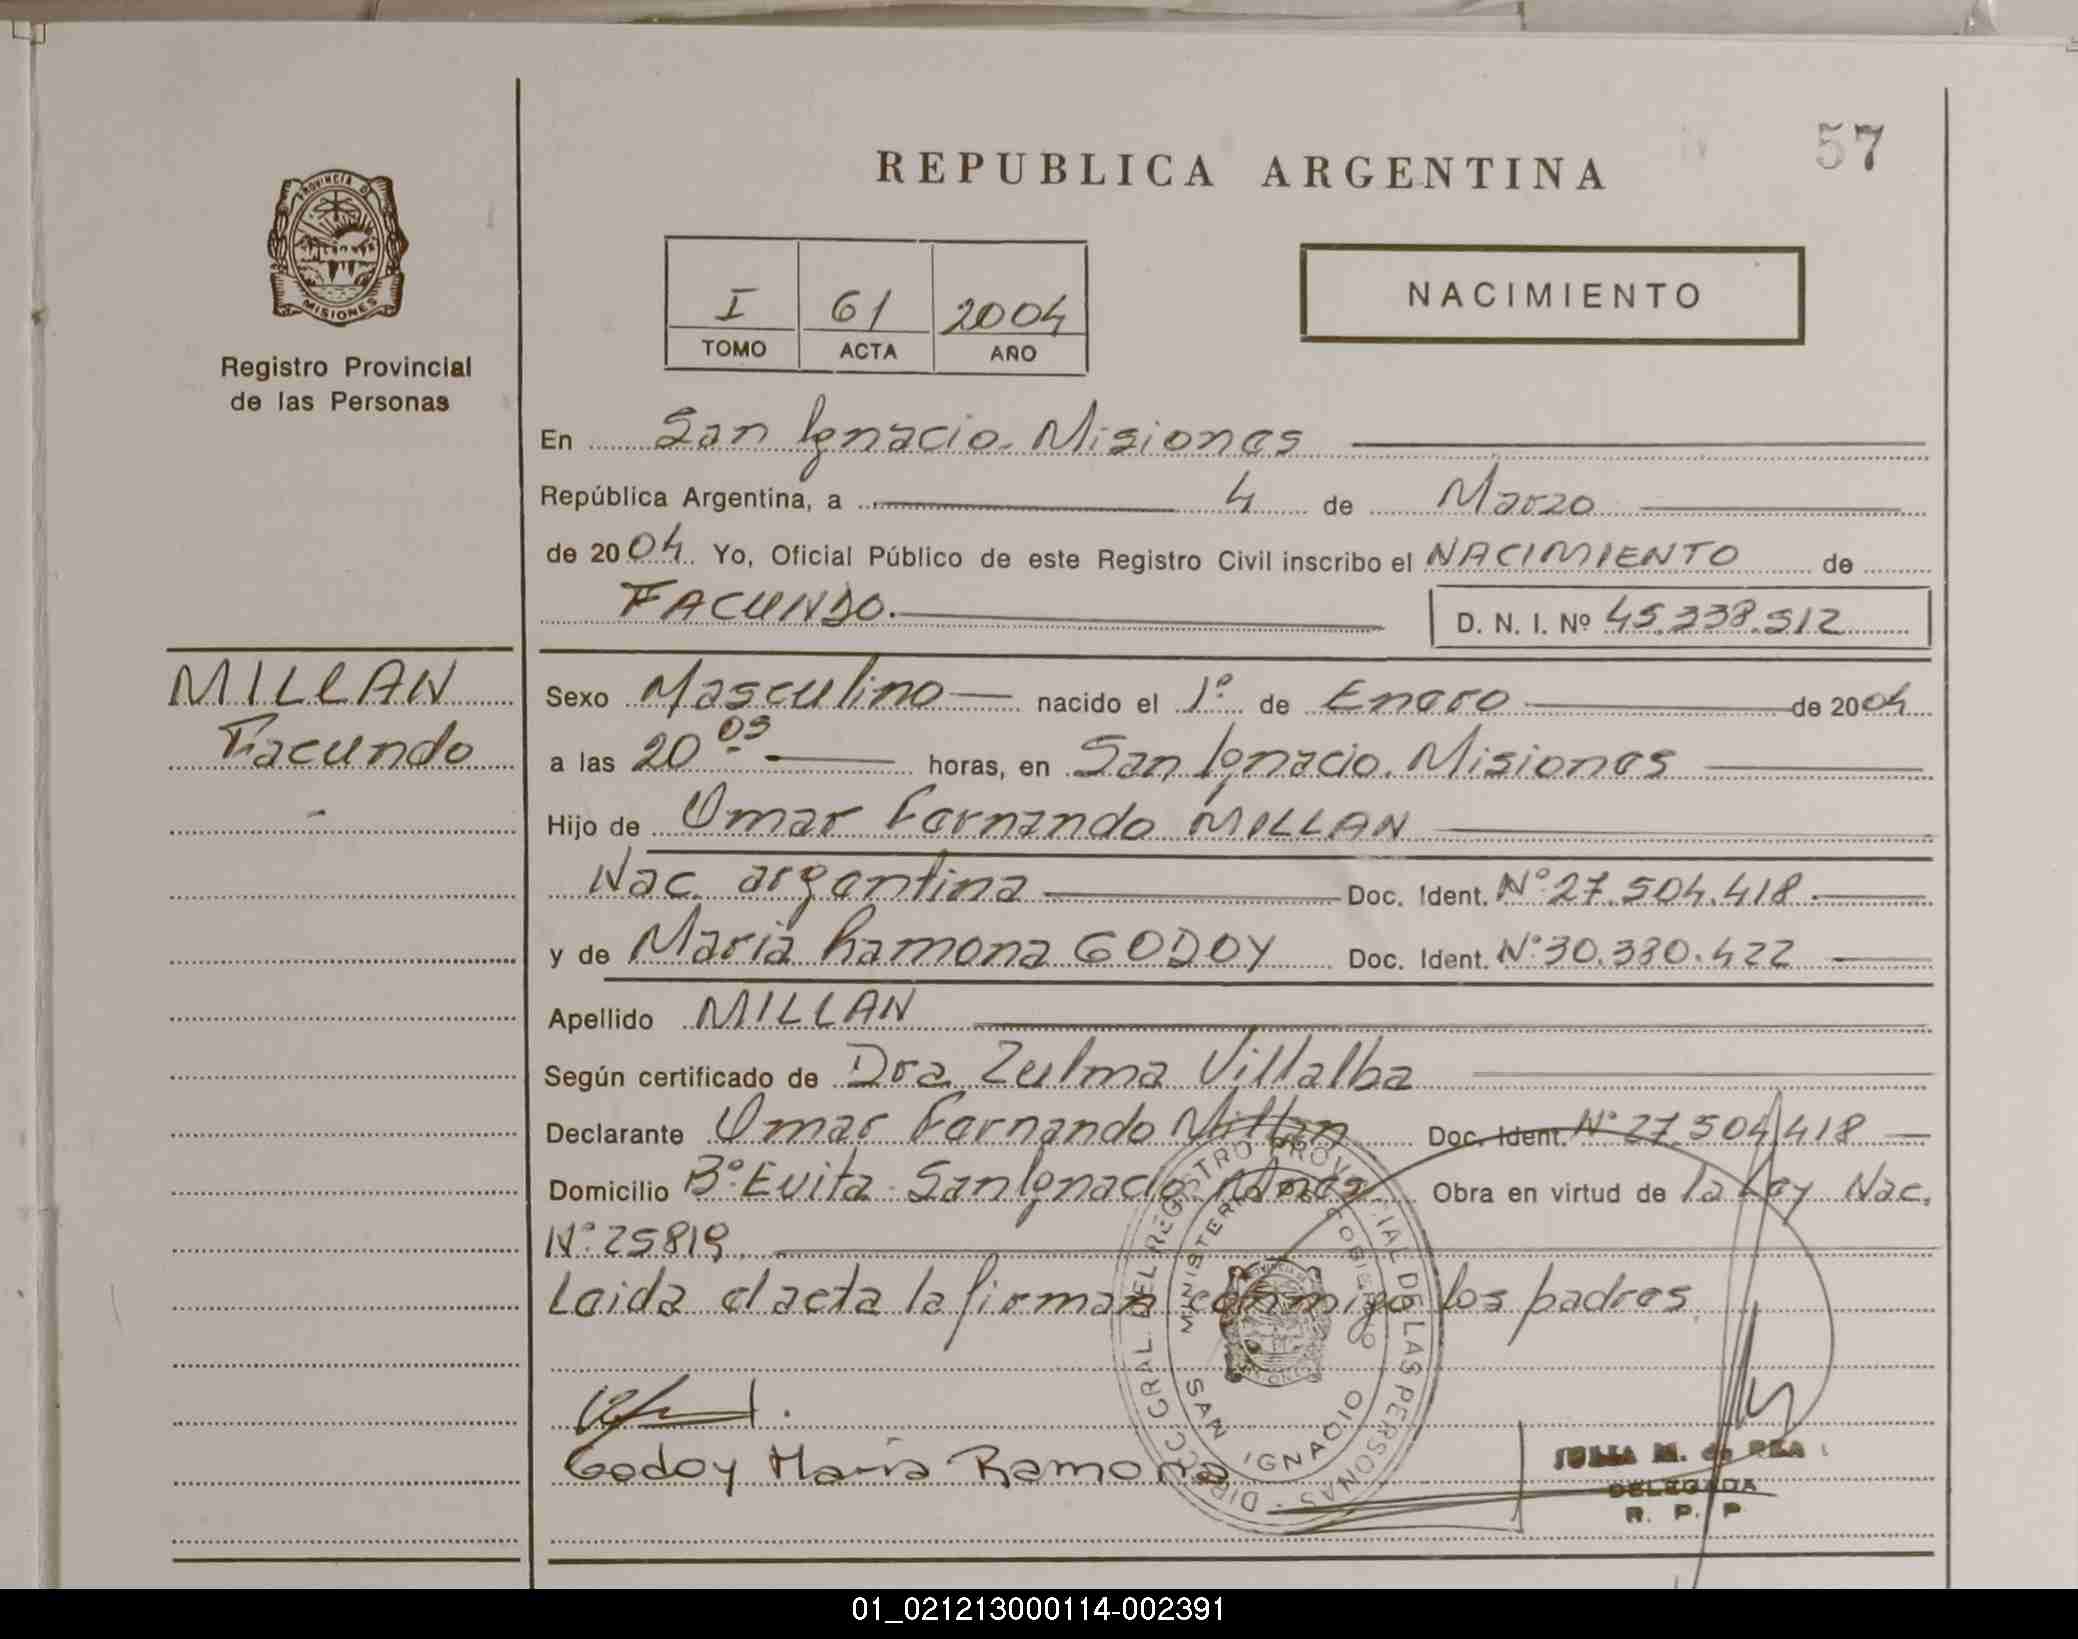 57
REPUBLICA ARGENTINA
PROVINCIA DE
MISIONES
Registro Provincial
de las Personas
I 61 2004
TOMO ACTA AÑO
NACIMIENTO
En San Ignacio. Misiones
República Argentina, a 4 de Marzo
de 2004. Yo, Oficial Público de este Registro Civil inscribo el NACIMIENTO de
FACUNDO.
D. N. I. Nº 45.338.512
MILLAN
Facundo
Sexo Masculino nacido el 1º de Enero de 2004
a las 20 05 horas, en San Ignacio. Misiones
Hijo de Omar Fernando MILLAN
Nac. argentina Doc. Ident. Nº 27.504.418
y de Maria Ramona GODOY Doc. Ident. Nº 30.380.422
Apellido MILLAN
Según certificado de Dra Zulma Villalba
Declarante Omar Fernando Millan Doc. Ident. Nº 27.504.418
Domicilio Bº Evita San Ignacio Mnes. Obra en virtud de la Ley Nac.
Nº 25819
Leida el acta la firman conmigo los padres
Godoy María Ramona
DIRECC GRAL DEL REGISTRO PROVINCIAL DE LAS PERSONAS
MINISTERIO DE GOBIERNO
SAN IGNACIO
JULIA M. de REA
DELEGADA
R. P. P.
01_021213000114-002391